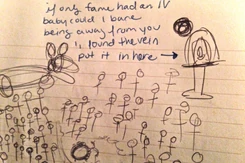 if only fame had an IV
baby could I bare
being away from you
I found the vein
put it in here